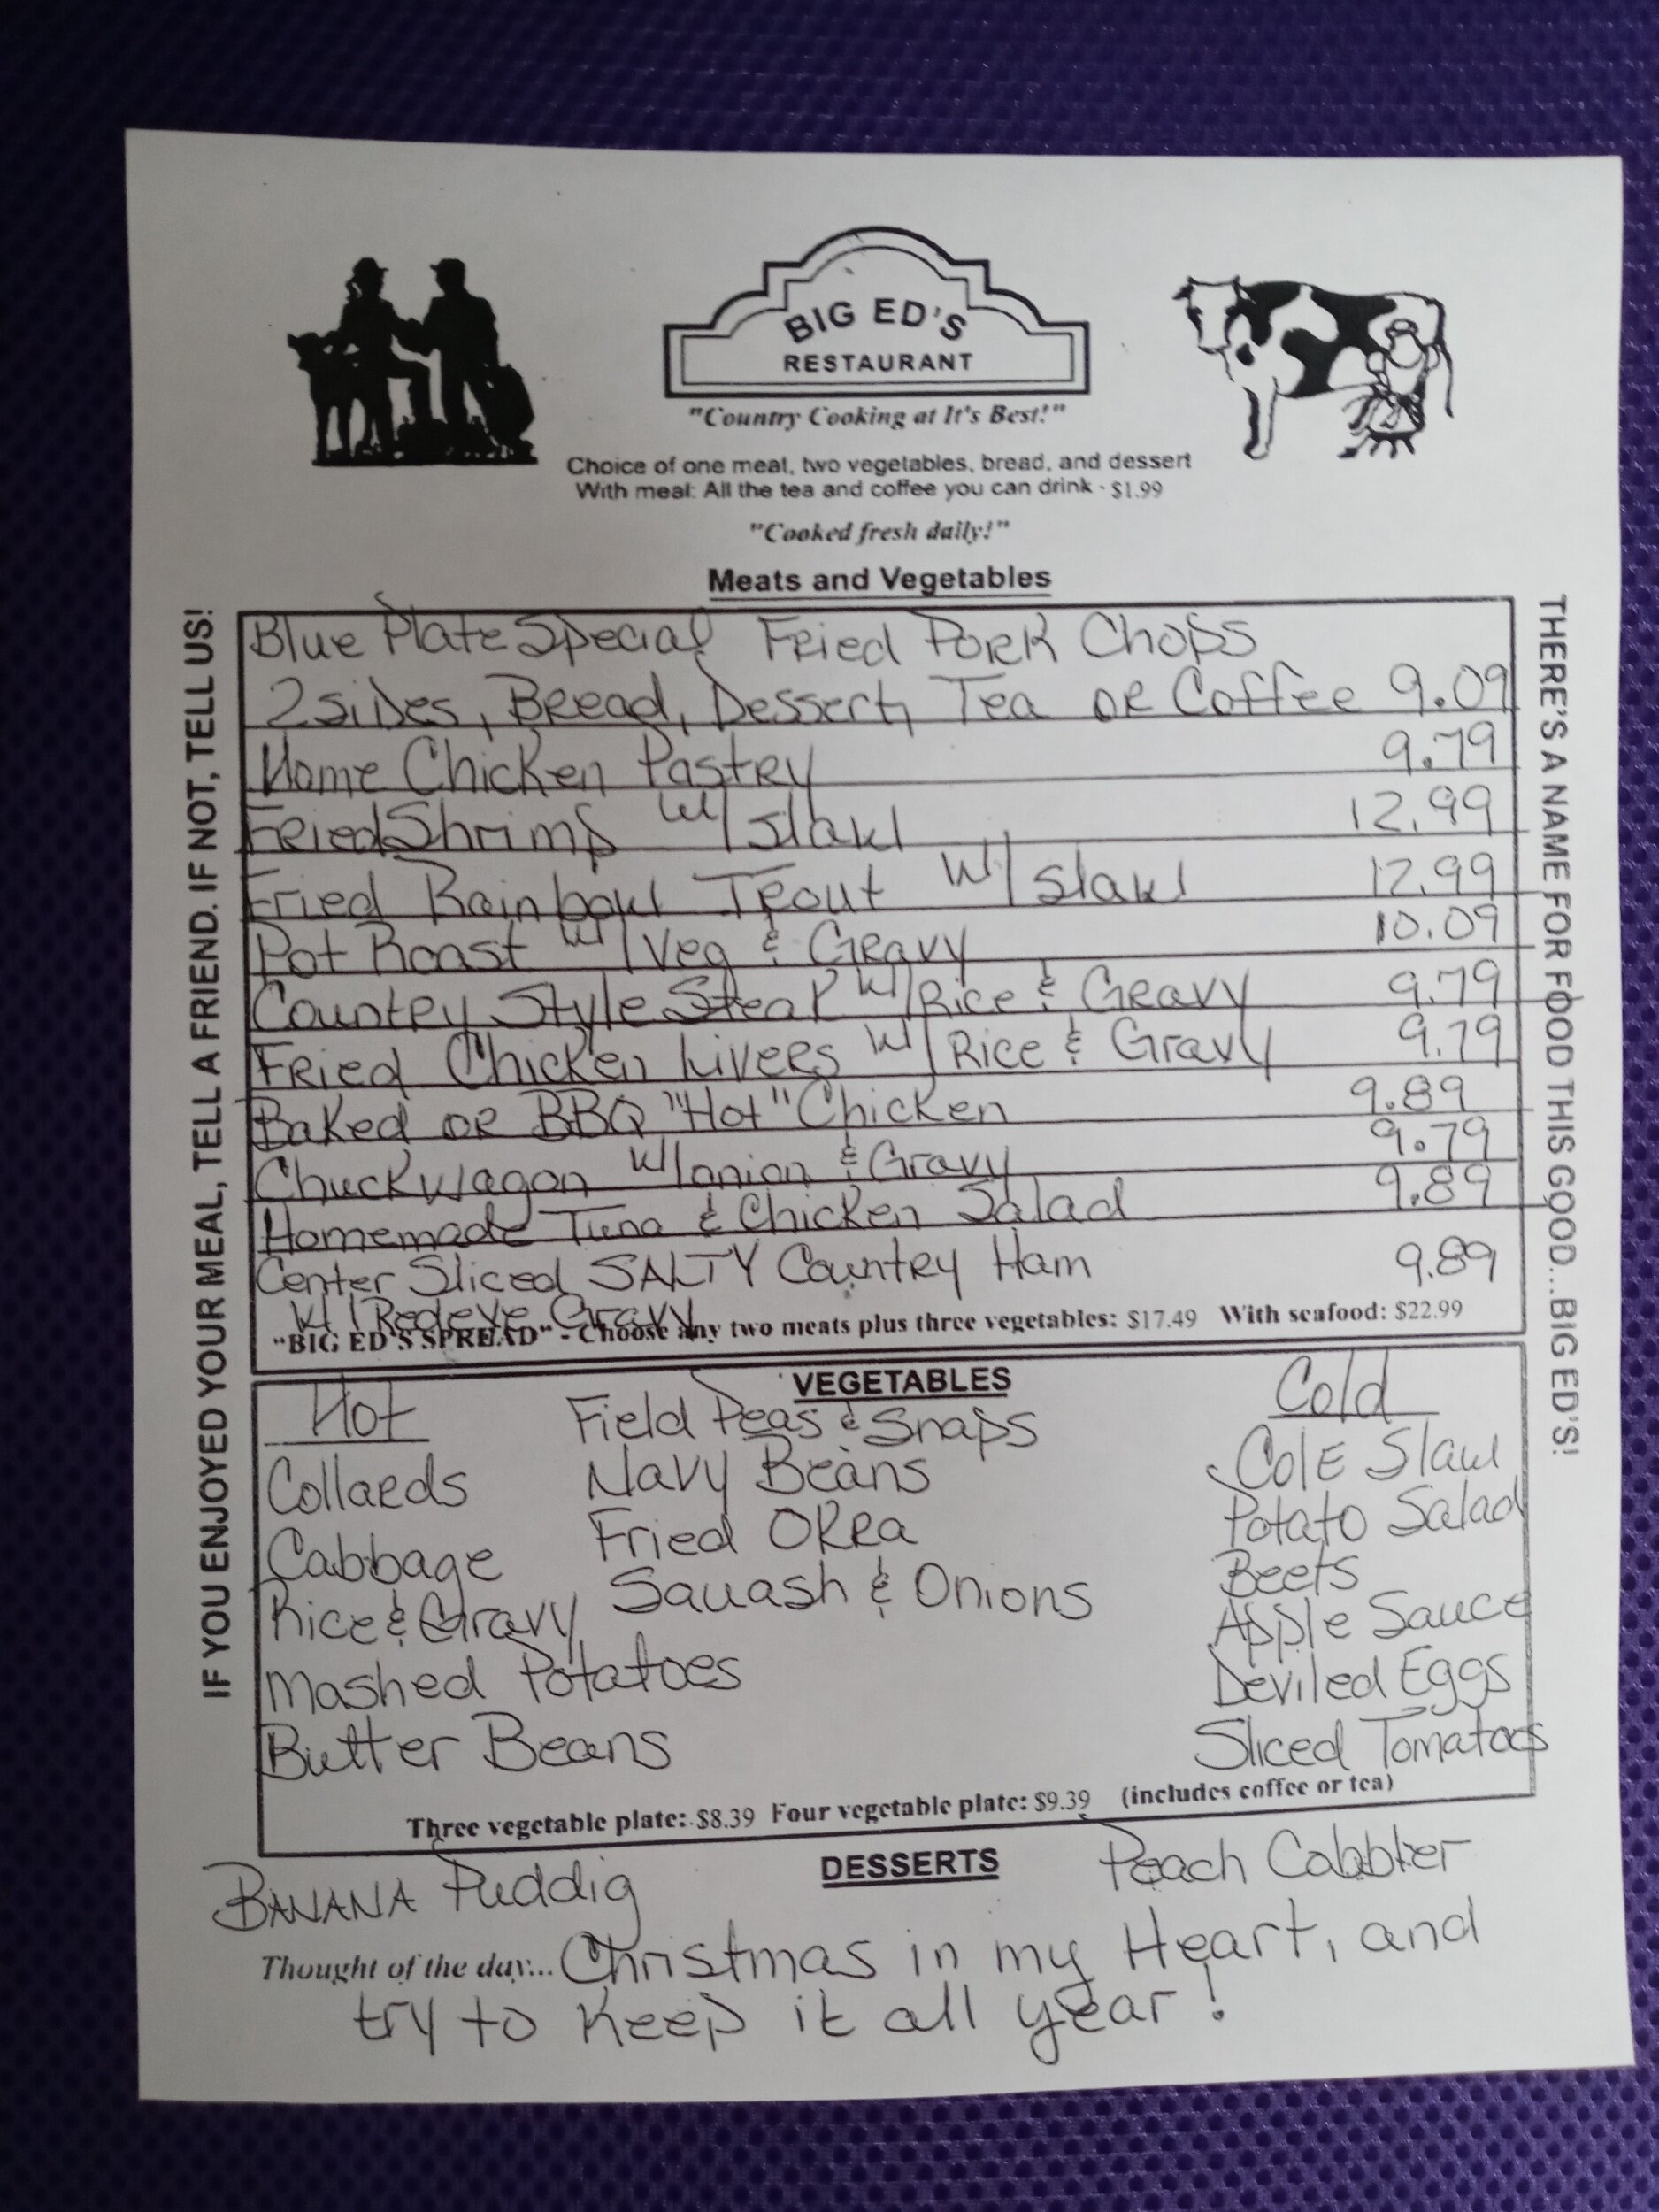 BIG ED'S
RESTAURANT
"Country Cooking at It's Best!"
Choice of one meat, two vegetables, bread, and dessert
With meal: All the tea and coffee you can drink - $1.99
"Cooked fresh daily!"
Meats and Vegetables
IF YOU ENJOYED YOUR MEAL, TELL A FRIEND. IF NOT, TELL US!
THERE'S A NAME FOR FOOD THIS GOOD...BIG ED'S!
Blue Plate Special Fried Pork Chops
2 sides, Bread, Dessert, Tea or Coffee 9.09
Home Chicken Pastry 9.79
Fried Shrimp w/ slaw 12.99
Fried Rainbow Trout w/ slaw 12.99
Pot Roast w/ Veg & Gravy 10.09
Country Style Steak w/ Rice & Gravy 9.79
Fried Chicken Livers w/ Rice & Gravy 9.79
Baked or BBQ "Hot" Chicken 9.89
Chuckwagon w/ onion & Gravy 9.79
Homemade Tuna & Chicken Salad 9.89
Center Sliced SALTY Country Ham 9.89
w/ Redeye Gravy
"BIG ED'S SPREAD" - Choose any two meats plus three vegetables: $17.49 With seafood: $22.99
VEGETABLES
Hot
Collards
Cabbage
Rice & Gravy
Mashed Potatoes
Butter Beans
Field Peas & Snaps
Navy Beans
Fried Okra
Squash & Onions
Cold
Cole Slaw
Potato Salad
Beets
Apple Sauce
Deviled Eggs
Sliced Tomatoes
Three vegetable plate: $8.39 Four vegetable plate: $9.39 (includes coffee or tea)
DESSERTS
BANANA Puddig
Peach Cobbler
Thought of the day:... Christmas in my Heart, and
try to keep it all year!